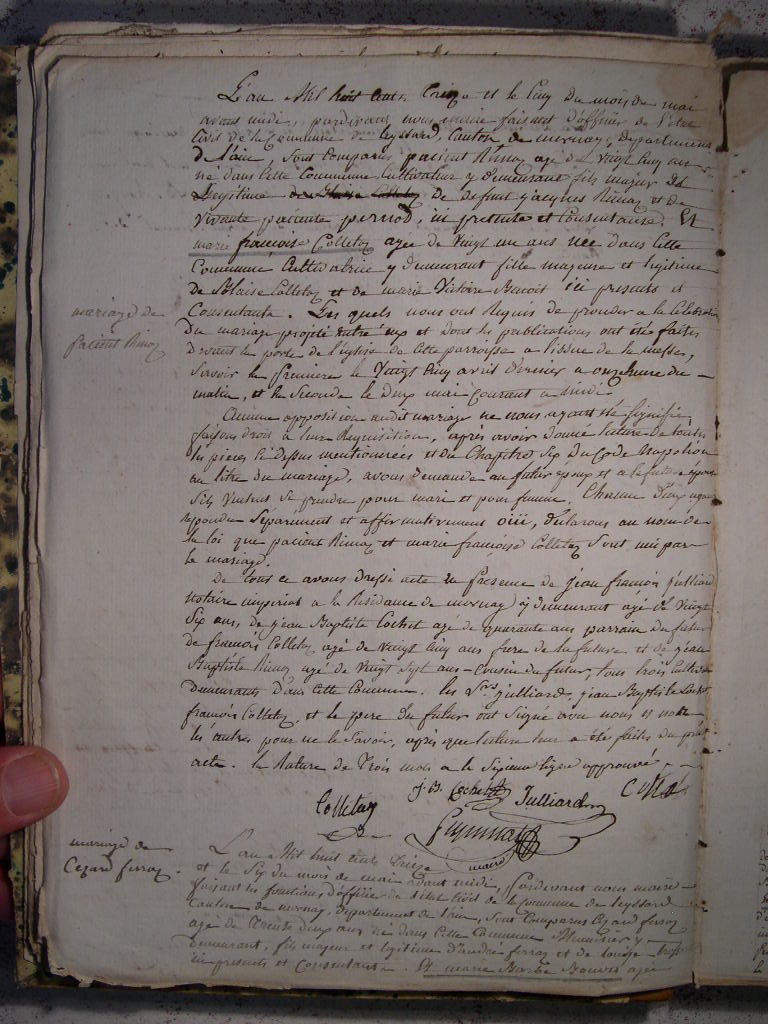 L'an Mil huit cents treize et le Cinq du mois de mai
avant midi, pardevant nous maire faisant d'officier de l'état
Civil de la Commune de leyssard, Canton de mornay, département
De l'ain, sont Comparus pacient Rimoz agé de Vingt Cinq ans
né dans Cette Commune Cultivateur y demeurant fils majeur &
Legitime de Blaise Colletaz De defunt jacques Rimoz et de
Vivante paciente pernod, ici presente et Consentante. Et
marie françoise Colletaz agée de Vingt un ans née dans Cette
Commune Cultivatrice y demeurant fille majeure et legitime
de Blaise Colletaz et de marie Victoire Benoit ici presents et
Consentants. Les quels nous ont Requis de proceder a la Celebration
Du mariage projeté entr'eux et dont les publications ont été faites
Devant la porte de l'église de Cette parroisse a l'issue de la messe,
mariage de
pacient Rimoz
Savoir la premiere le Vingt Cinq avril dernier a onze heure du
matin, et la Seconde le Deux mai Courant a midi.
Aucune opposition audit mariage ne nous ayant été Signifié
faisons droit a leur Requisition, après avoir donné lecture de toutes
les pieces Ci dessus mentionnées et du Chapitre Six du Code Napoléon
au titre du mariage, avons demandé au futur époux et a la future épouse
S'ils veulent Se prendre pour mari et pour femme, Chacun d'eux ayant
répondu Séparément et affirmativement oui, déclarons au nom de
la loi que pacient Rimoz et marie françoise Colletaz Sont unis par
le mariage.
De tout ce avons dressé acte en presence de jean francois julliard
Notaire imperial a la Residance de mornay y demeurant agé de Vingt
Six ans, de jean Baptiste Cochet agé de quarante ans parrain du futur
de francois Colletaz agé de vingt Cinq ans frere de la future et de jean
Baptiste Rimoz agé de Vingt Sept ans Cousin du futur, tous trois Cultivateurs
Demeurants Dans Cette Commune. les Srs julliard, jean Baptiste Cochet,
francois Colletaz, et le pere du futur ont Signée avec nous et non
les autres pour ne le Savoir, après que lecture leur a été faites du présent
acte. la Rature de Trois mots a la Sixieme ligne approuvée
Colletaz j. B. Cochet Julliard
maire
mariage de
Cezard ferroz.
L'an Mil huit cents treize
et le Six du mois de mai avant midi, Pardevant nous maire
faisant les fonctions d'officier de l'état Civil de la Commune de leyssard
Canton de mornay, département de l'ain, sont Comparus Cezard ferroz
agé de Trente deux ans né dans Cette Commune Menuisier y
demeurant, fils majeur et legitime d'andré ferroz et de louise
ici presents et Consentants. Et marie Barbe Bouvet agée